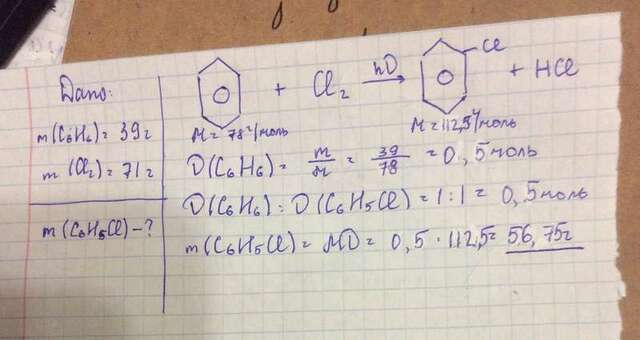 Дано:
m(C₆H₆) = 39г
m(Cl₂) = 71г
m(C₆H₅Cl) - ?
+ Cl₂ hυ → Cl + HCl
M = 78г/моль
M = 112,5г/моль
υ(C₆H₆) = m/M = 39/78 = 0,5моль
υ(C₆H₆) : υ(C₆H₅Cl) = 1:1 = 0,5моль
m(C₆H₅Cl) = Mυ = 0,5 · 112,5 = 56,75г